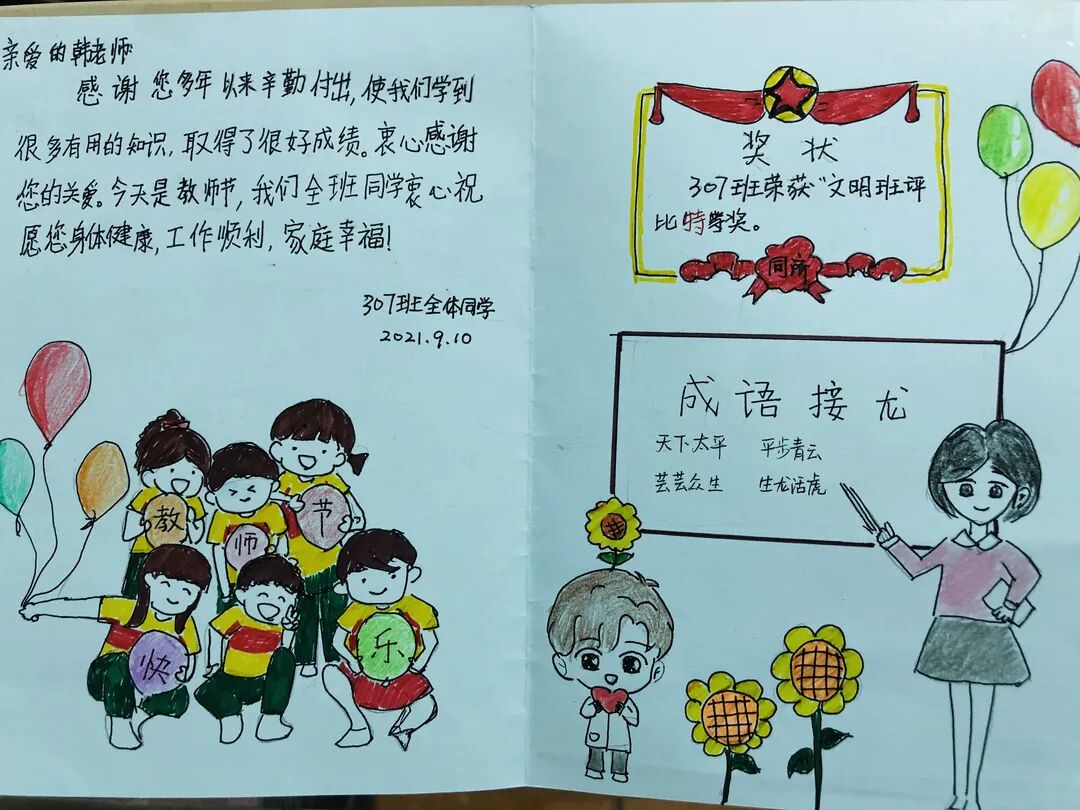 亲爱的韩老师
感谢您多年以来辛勤付出,使我们学到
很多有用的知识,取得了很好成绩。衷心感谢
您的关爱。今天是教师节,我们全班同学衷心祝
愿您身体健康,工作顺利,家庭幸福!
307班全体同学
2021.9.10
教
师
节
快
乐
奖状
307班荣获“文明班评
比特等奖。
成语接龙
天下太平 平步青云
芸芸众生 生龙活虎